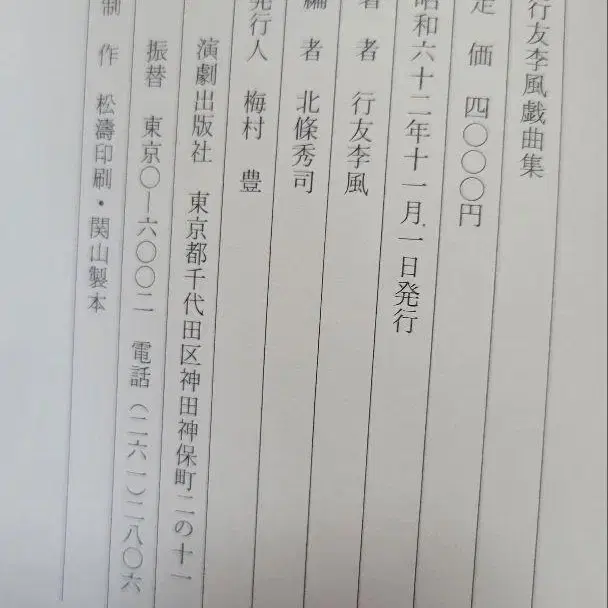 行友李風戯曲集
定価 四〇〇〇円
昭和六十二年十一月一日発行
著者 行友李風
編者 北條秀司
発行人 梅村豊
演劇出版社 東京都千代田区神田神保町二の十一
振替 東京〇―六〇〇二 電話(二六一)二八〇六
制作 松濤印刷・関山製本